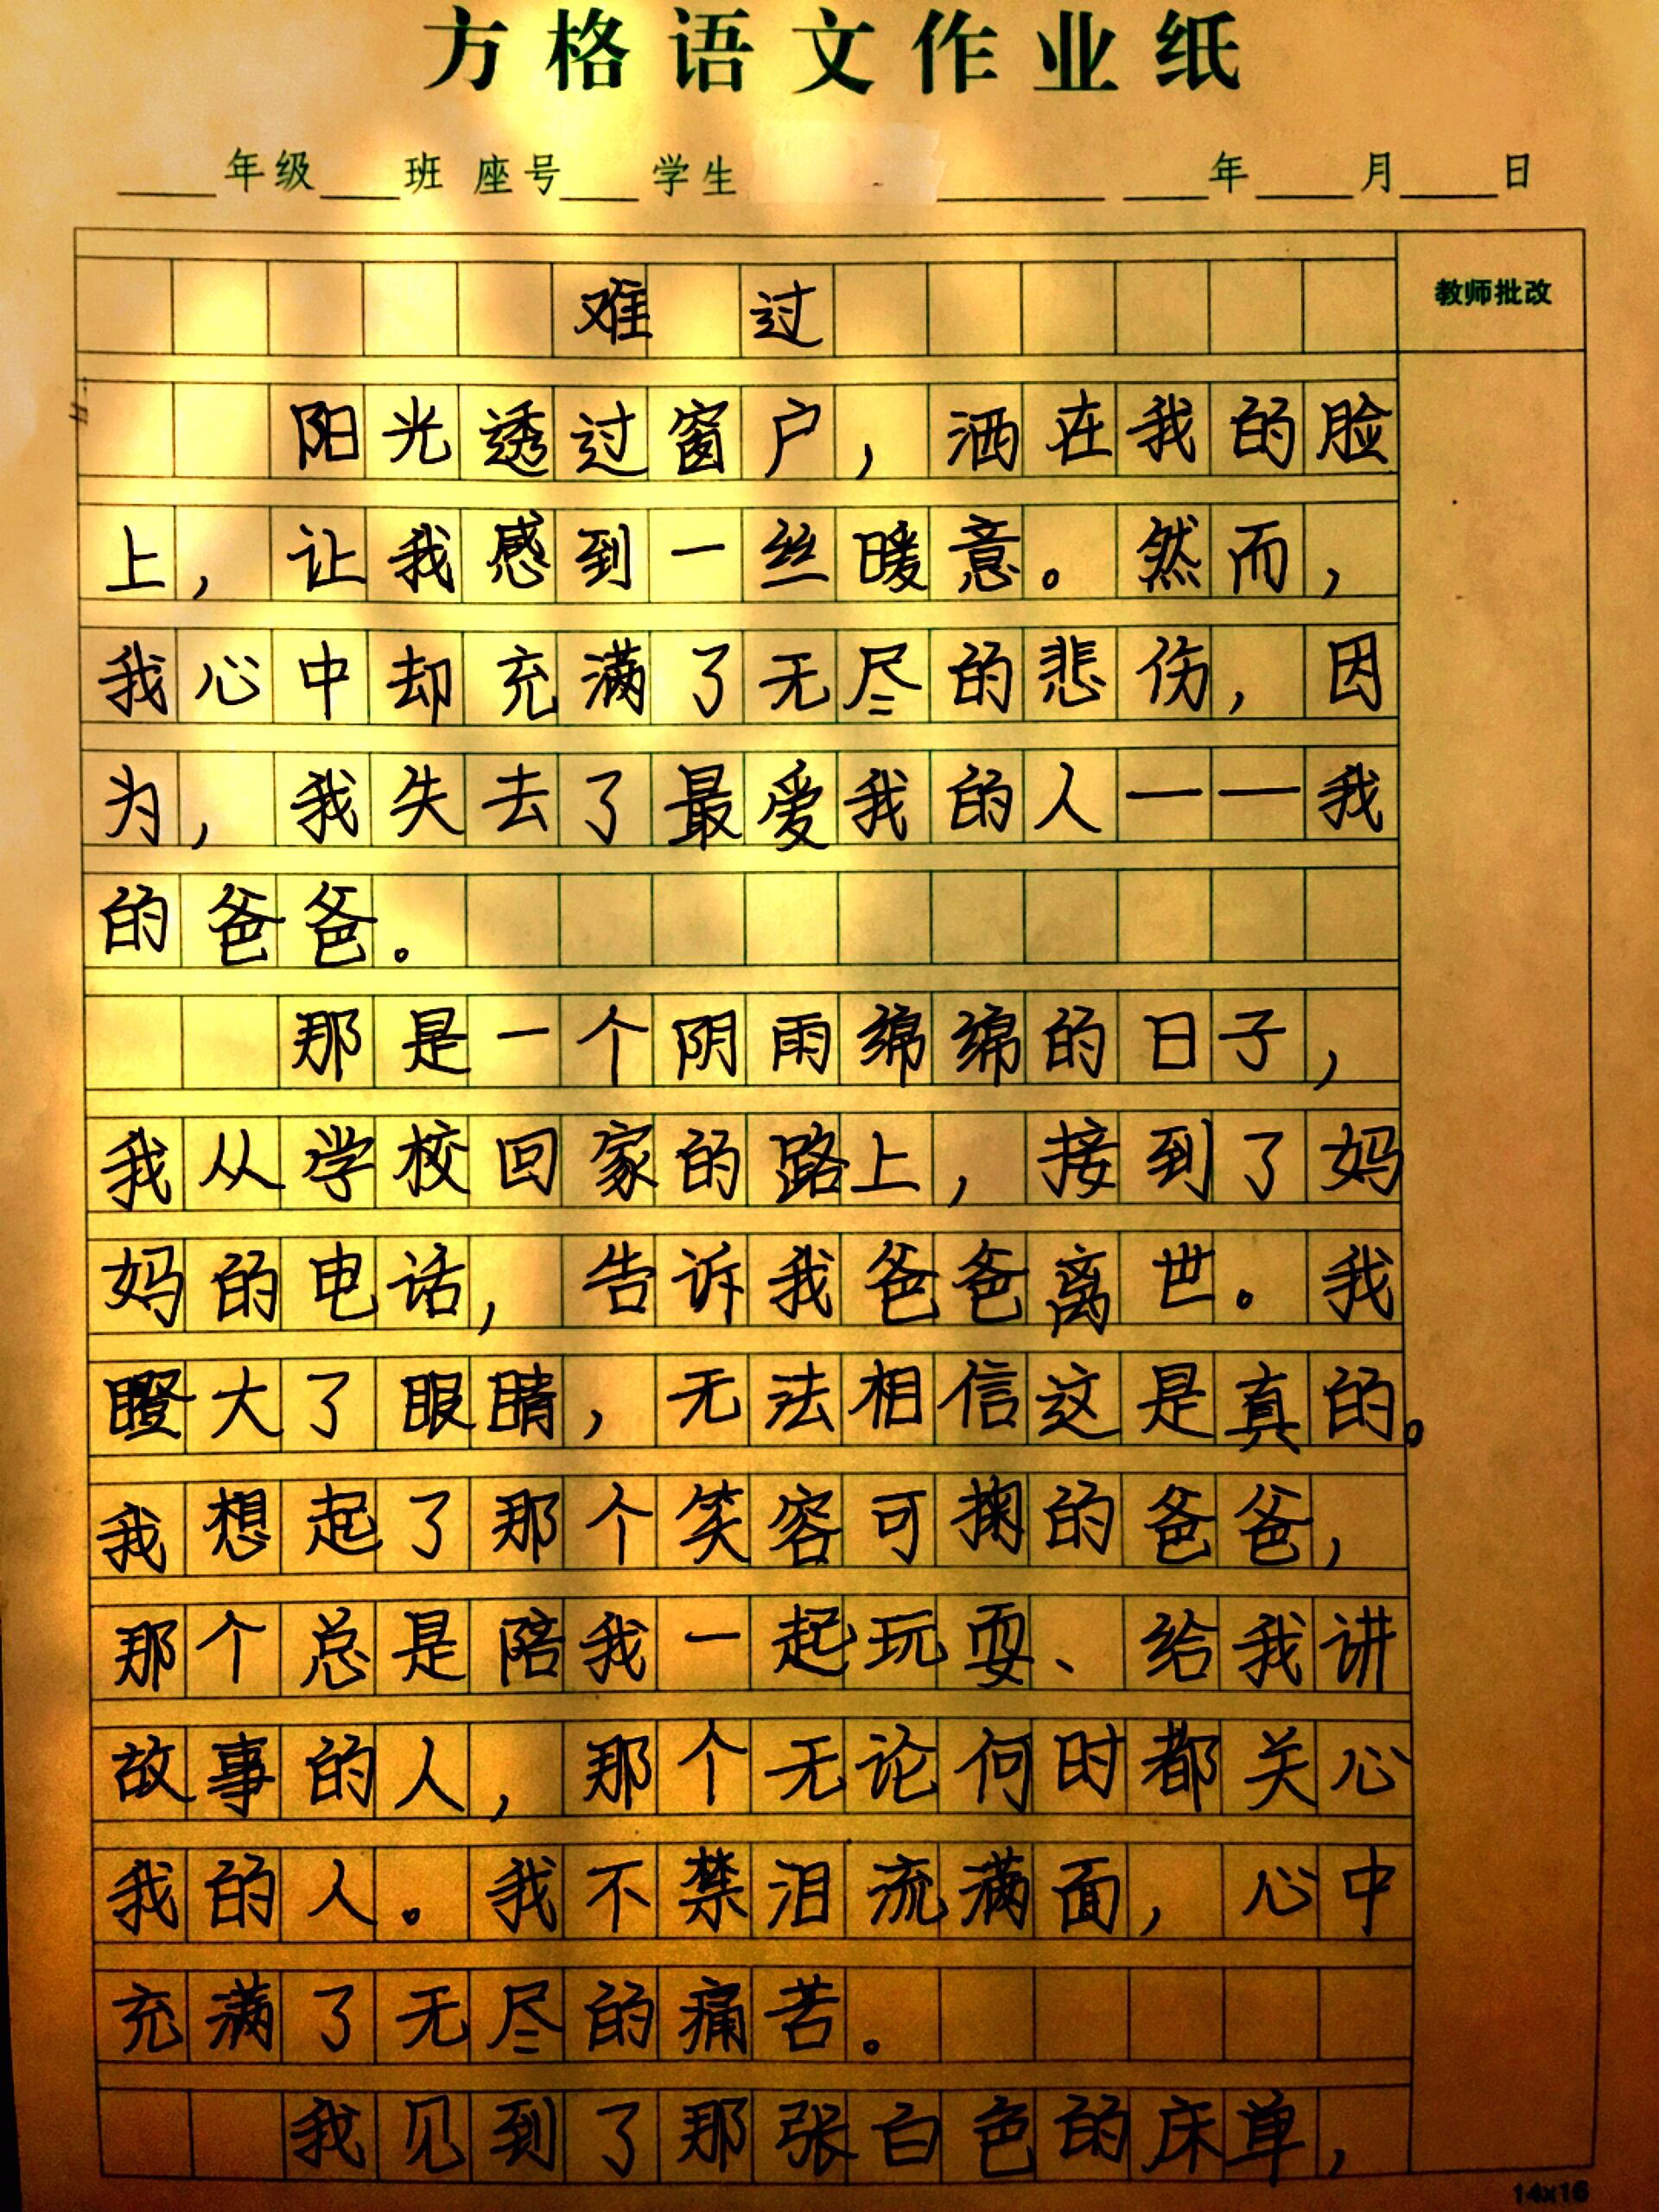 方格语文作业纸
年级 班 座号 学生 年 月 日
难过
教师批改
阳光透过窗户，洒在我的脸
上，让我感到一丝暖意。然而，
我心中却充满了无尽的悲伤，因
为，我失去了最爱我的人——我
的爸爸。
那是一个阴雨绵绵的日子，
我从学校回家的路上，接到了妈
妈的电话，告诉我爸爸离世。我
瞪大了眼睛，无法相信这是真的。
我想起了那个笑容可掬的爸爸，
那个总是陪我一起玩耍、给我讲
故事的人，那个无论何时都关心
我的人。我不禁泪流满面，心中
充满了无尽的痛苦。
我见到了那张白色的床单，
14x16